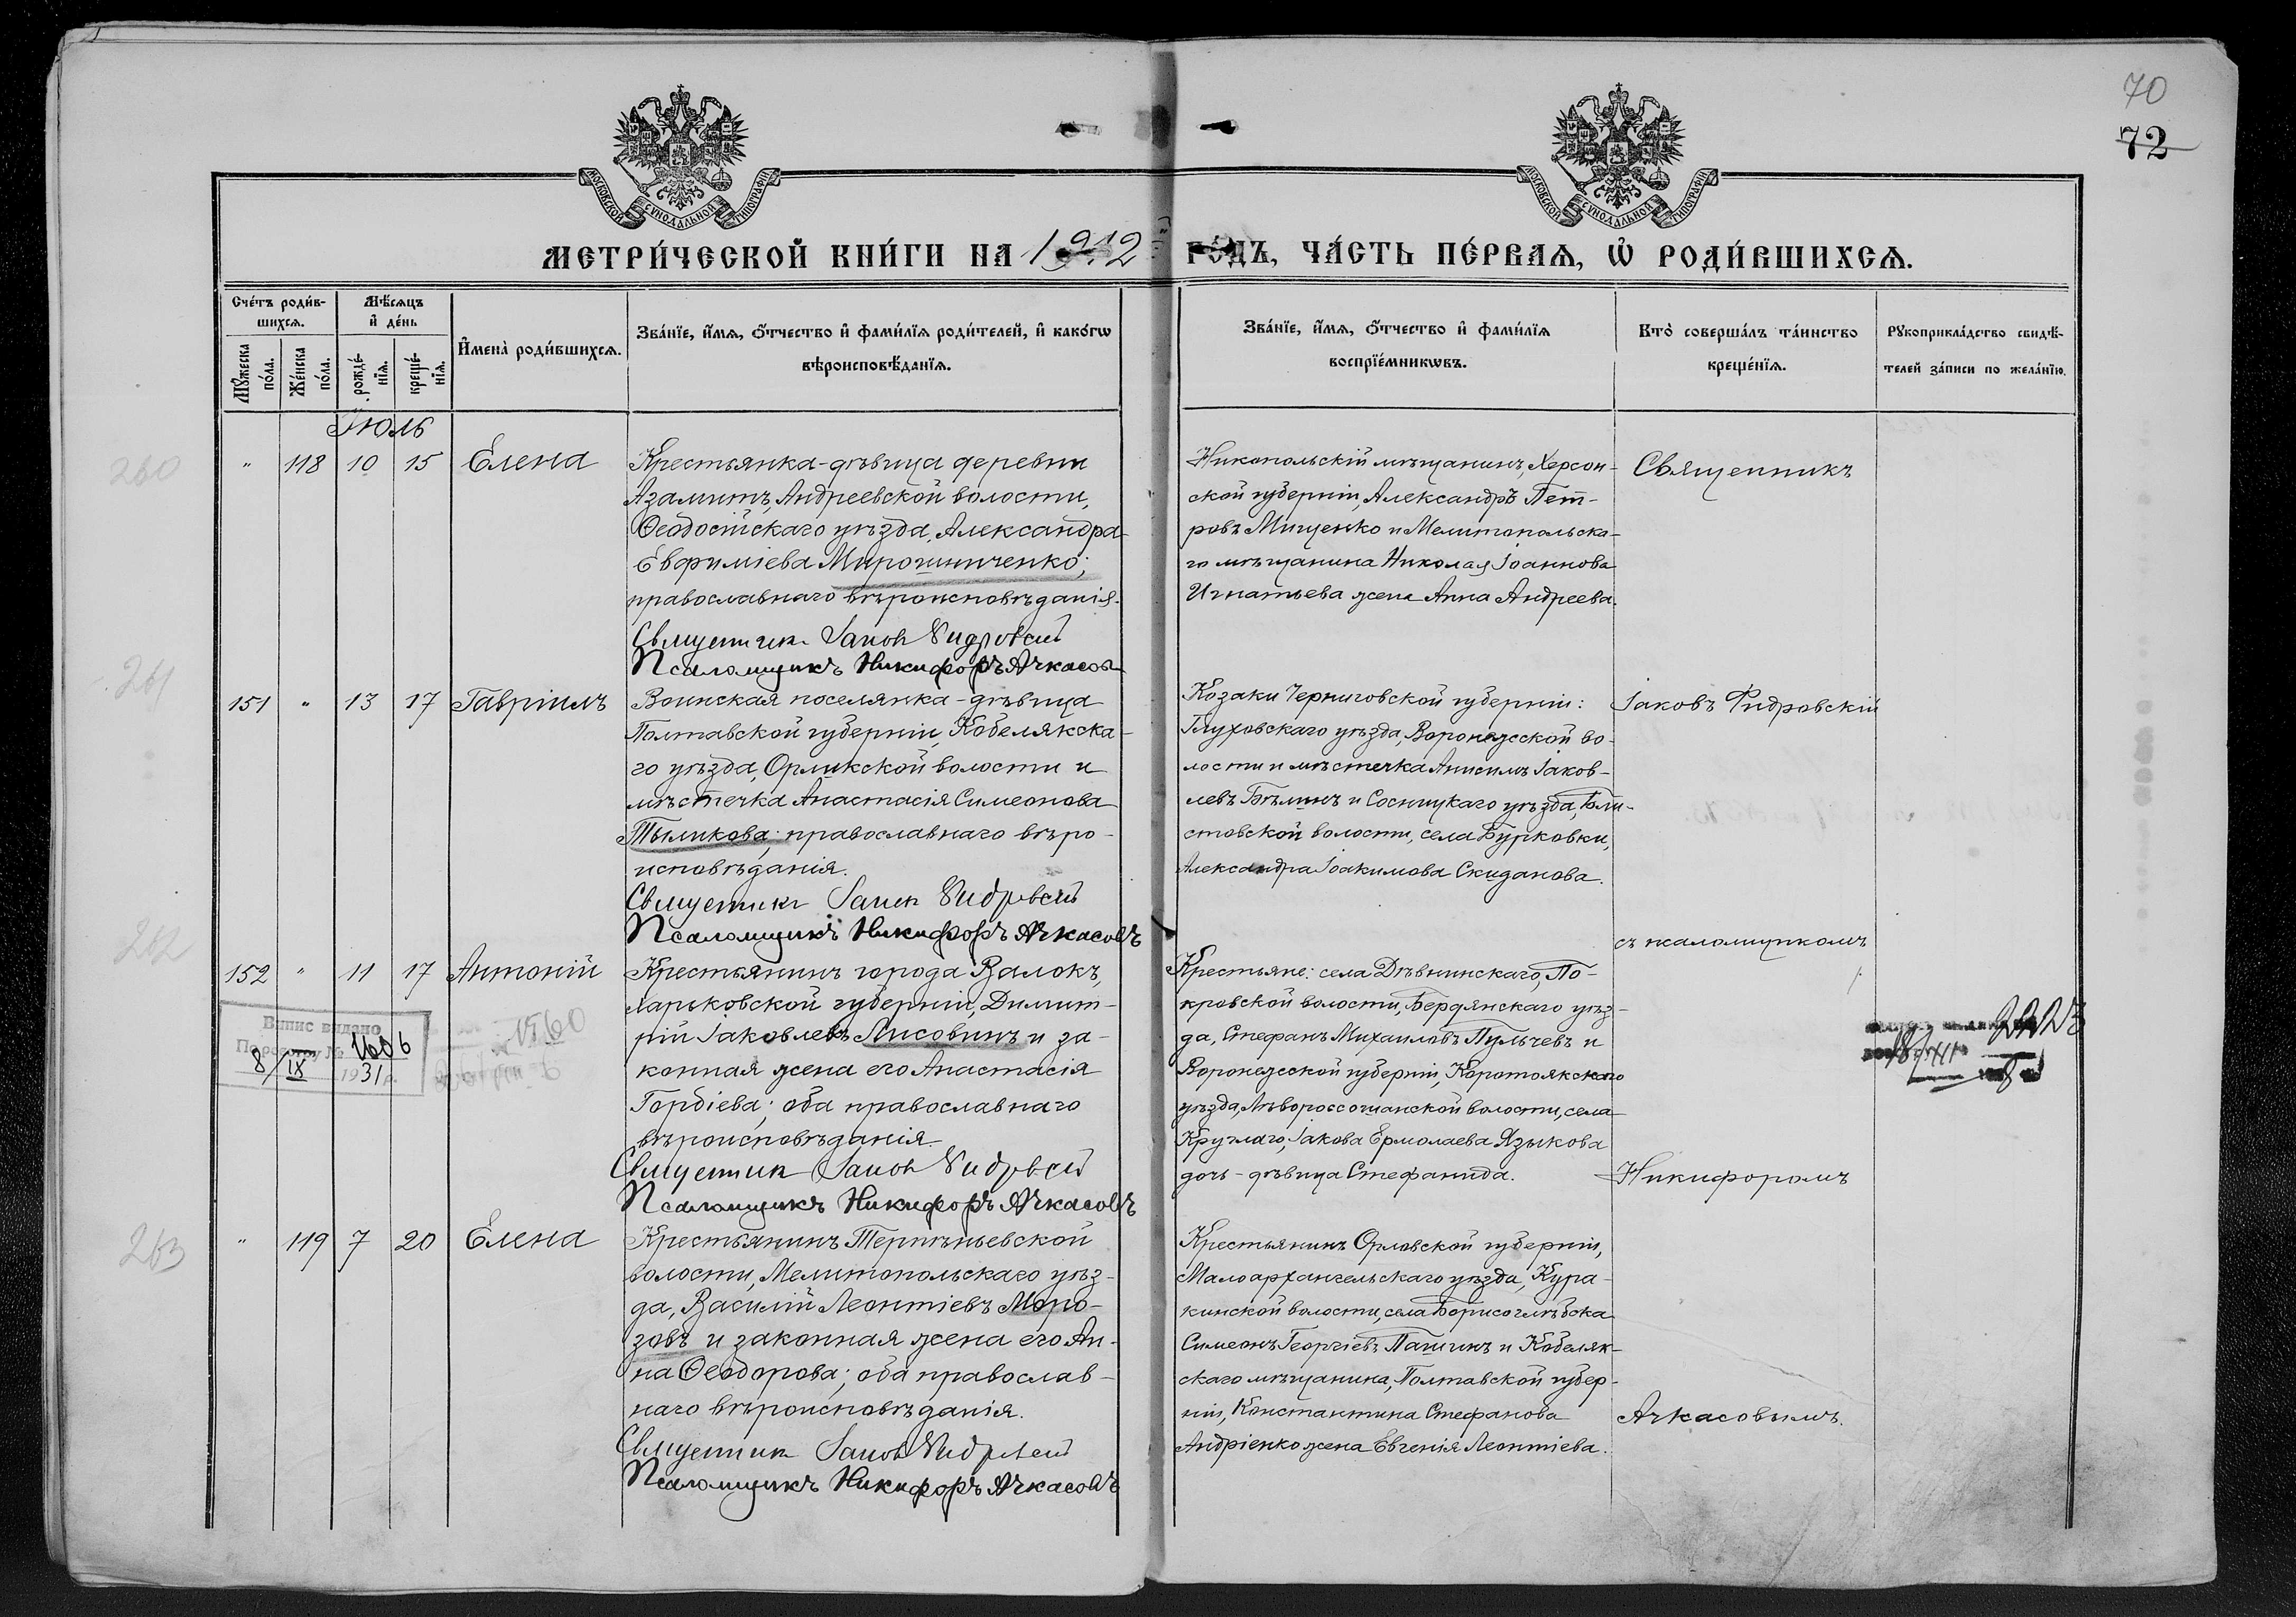 70
72
МОСКОВСКОЙ СѴНОДАЛЬНОЙ ТИПОГРАФІИ
МОСКОВСКОЙ СѴНОДАЛЬНОЙ ТИПОГРАФІИ
МЕТРИ́ЧЕСКОЙ КНИ́ГИ НА 1912 ГО́ДЪ, ЧА́СТЬ ПЕ́РВАѦ, Ѡ҆ РОДИ́ВШИХСѦ.
Сче́тъ роди́в-
шихсѧ.
Мѣ́сѧцъ
и҆ де́нь
Мꙋ́жеска по́ла.
Же́нска по́ла.
рожде́-
нїѧ.
креще́-
нїѧ.
И҆мена̀ роди́вшихсѧ.
Зва́нїе, и҆́мѧ, ѻ҆́тчество и҆ фами́лїѧ роди́телей, и҆ како́гѡ
вѣроисповѣ́данїѧ.
Зва́нїе, и҆́мѧ, ѻ҆́тчество и҆ фами́лїѧ
воспрїе́мникѡвъ.
Кто̀ соверша́лъ та́инство
креще́нїѧ.
Рꙋкоприкла́дство свидѣ́-
телей за́писи по жела́нїю.
Іюль
260
" 118 10 15 Елена
Крестьянка-дѣвица деревни
Азамитъ, Андреевской волости,
Ѳеодосійскаго уѣзда, Александра
Евфиміева Мирошниченко;
православнаго вѣроисповѣданія.
Священник Іаков Фидровский
Псаломщикъ Никифоръ Ачкасов
Никопольскій мѣщанинъ, Херсон-
ской губерніи, Александръ Пет-
ровъ Мищенко и Мелитопольска-
го мѣщанина Николая Іоаннова
Игнатьева жена Анна Андреева.
Священникъ
261
151 " 13 17 Гавріилъ
Воинская поселянка-дѣвица
Полтавской губерніи, Кобелякска-
го уѣзда, Орликской волости и
мѣстечка Анастасія Симеонова
Тыликова; православнаго вѣро-
исповѣданія.
Священник Іаков Фидровский
Псаломщикъ Никифоръ Ачкасовъ
Козаки Черниговской губерніи:
Глуховскаго уѣзда, Воронежской во-
лости и мѣстечка Анисимъ Іаков-
левъ Бѣлинъ и Сосницкаго уѣзда, Бли-
стовской волости, села Бурковки,
Александра Іоакимова Скиданова.
Іаковъ Фидровскій
съ псаломщикомъ
262
152 " 11 17 Антоній
Крестьянинъ города Валокъ,
Харьковской губерніи, Димит-
рій Іаковлевъ Лисовинъ и за-
конная жена его Анастасія
Гордіева; оба православнаго
вѣроисповѣданія.
Священник Іаков Фидровский
Псаломщикъ Никифоръ Ачкасовъ
Випис видано
По реєстру № 1606
8/IX 1931 р.
1560
Крестьяне: села Дѣвнинскаго, По-
кровской волости, Бердянскаго уѣз-
да, Стефанъ Михаиловъ Пульчевъ и
Воронежской губерніи, Коротоякскаго
уѣзда, Лѣвороссошанской волости, села
Круглаго, Іакова Ермолаева Языкова
дочь-дѣвица Стефанида.
Никифоромъ
263
" 119 7 20 Елена
Крестьянинъ Терпѣньевской
волости, Мелитопольскаго уѣз-
да, Василій Леонтіевъ Моро-
зовъ и законная жена его Ан-
на Ѳеодорова; оба православ-
наго вѣроисповѣданія.
Священник Іаков Фидровский
Псаломщикъ Никифоръ Ачкасовъ
Крестьянинъ Орловской губерніи,
Малоархангельскаго уѣзда, Кура-
кинской волости, села Борисоглѣбска
Симеонъ Георгіевъ Пашинъ и Кобеляк-
скаго мѣщанина, Полтавской губер-
ніи, Константина Стефанова
Андріенко жена Евгенія Леонтіева.
Ачкасовымъ.